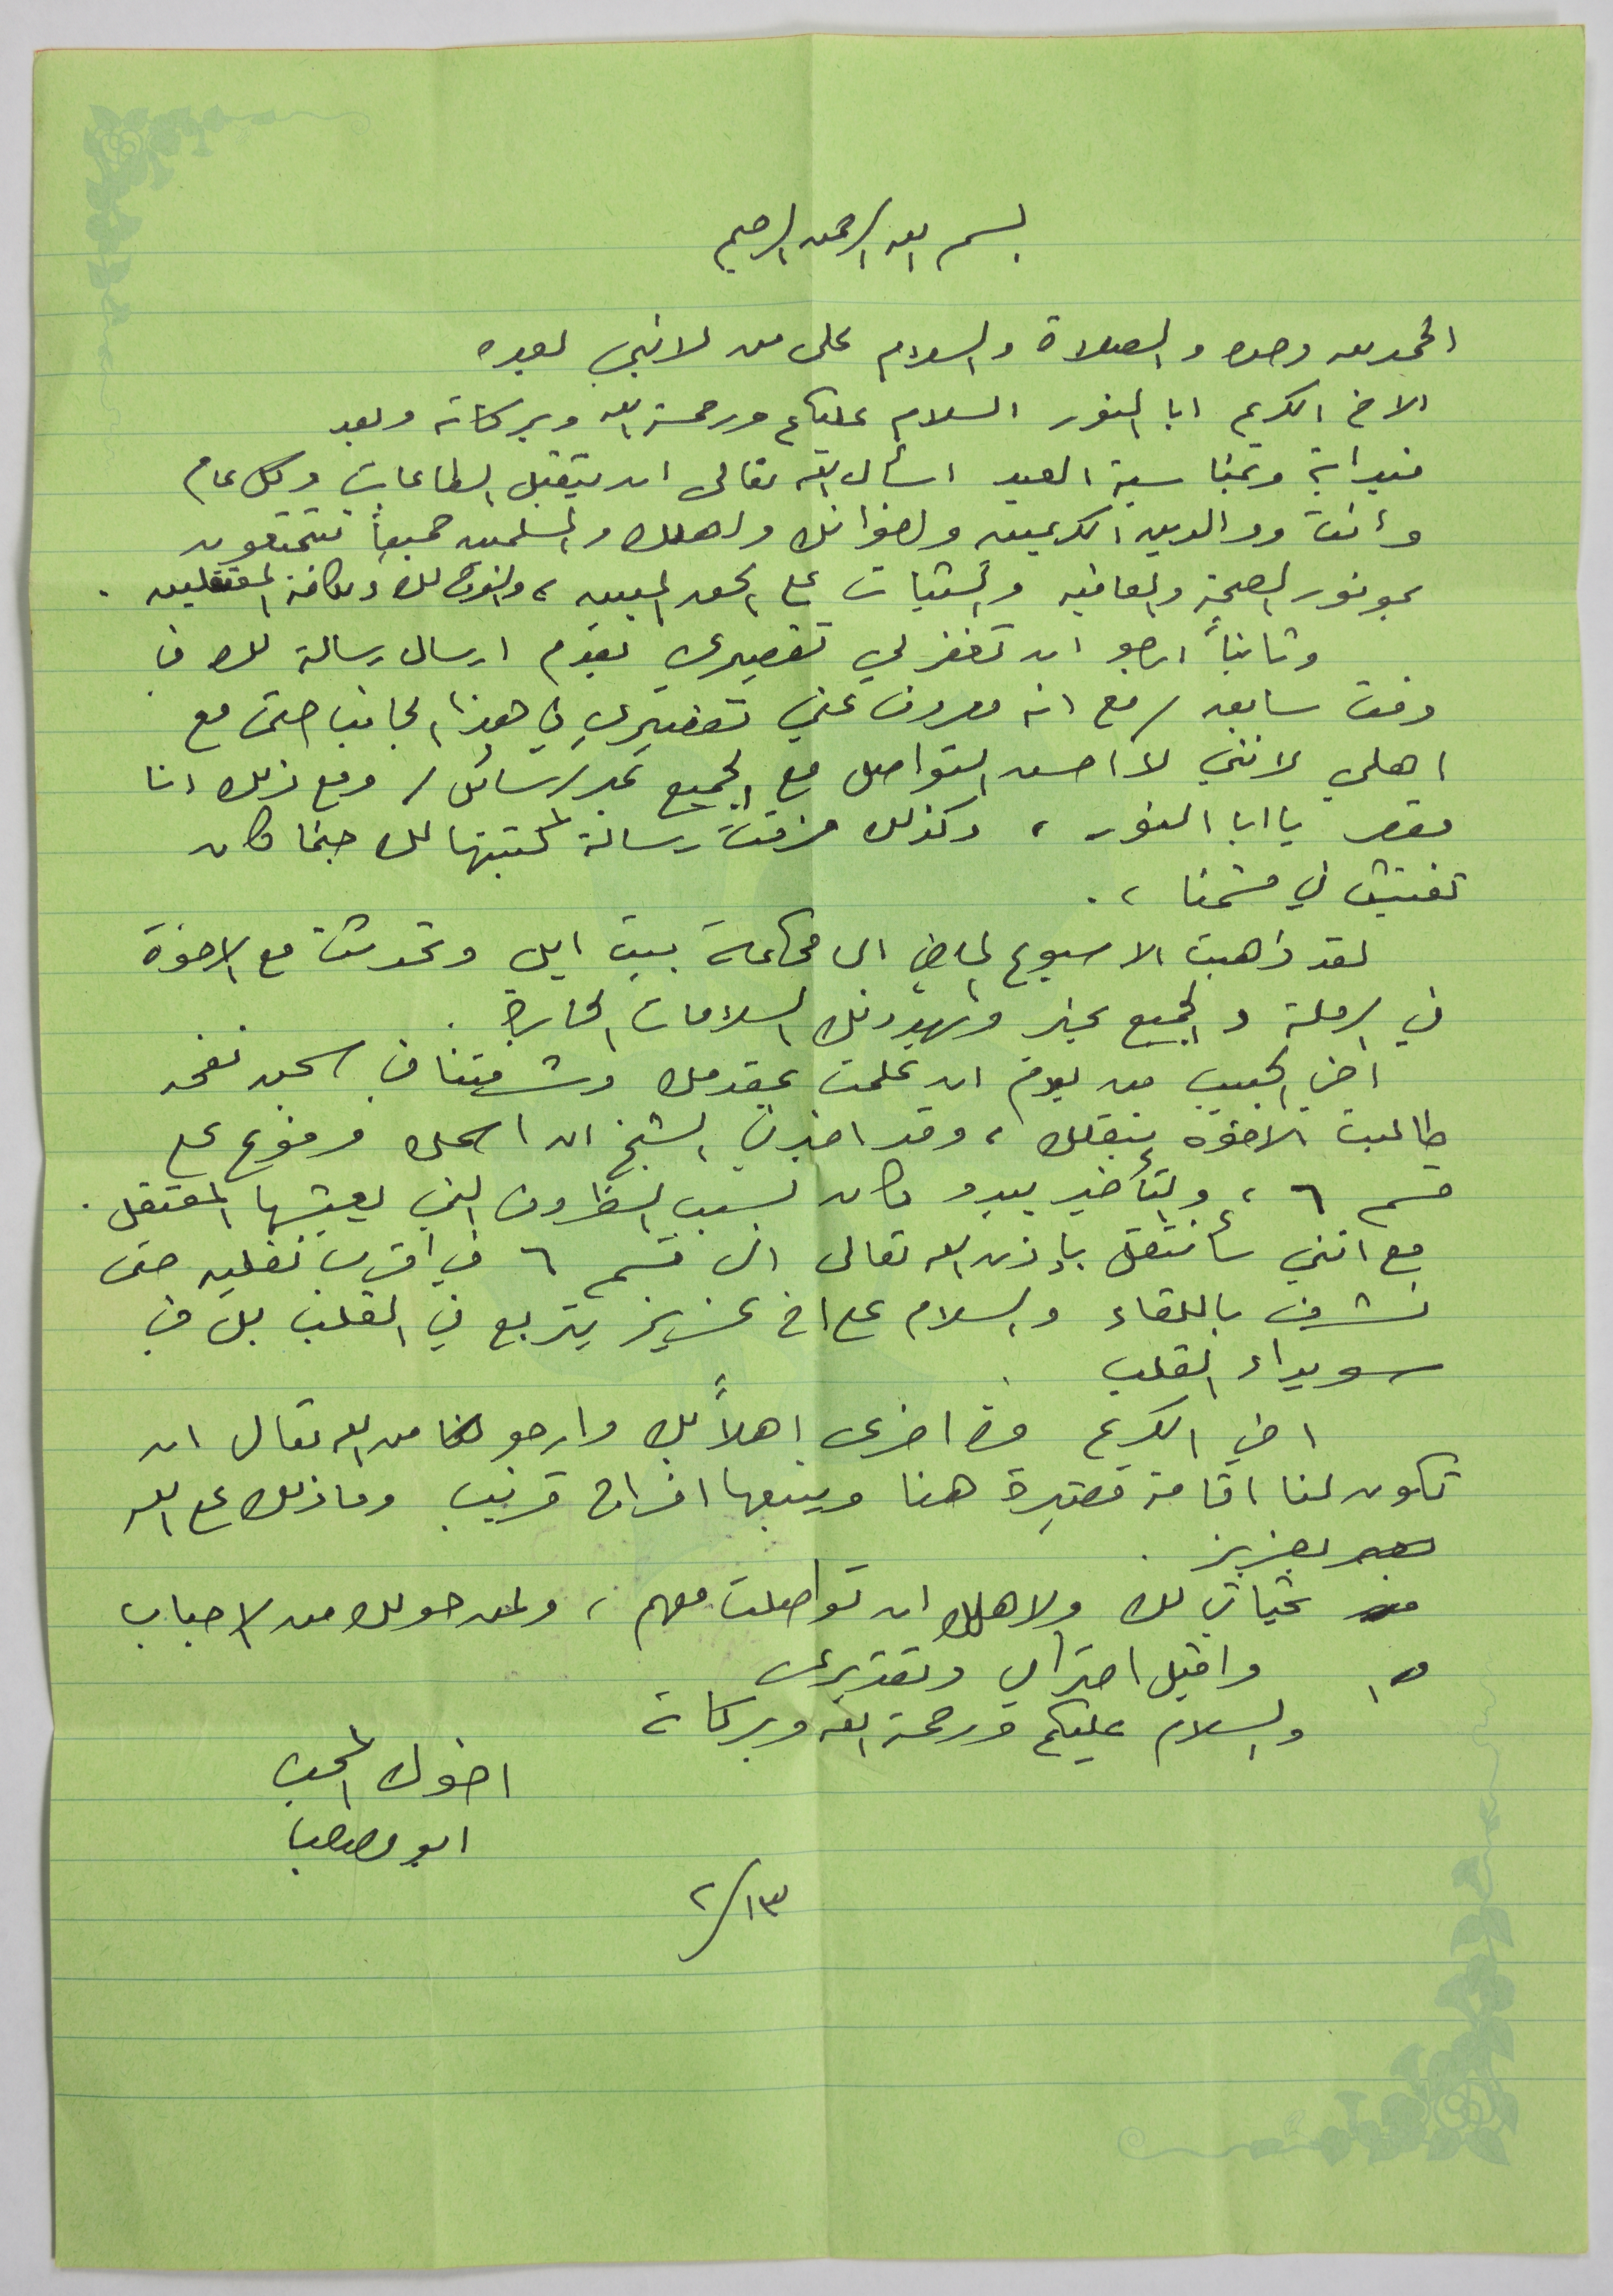 بسم الله الرحمن الرحيم
الحمد لله وحده والصلاة والسلام على من لا نبي بعده
الاخ الكريم ابا النور السلام عليكم ورحمة الله وبركاته وبعد
فبداية وبمناسبة العيد اسأل الله تعالى ان يتقبل الطاعات وكل عام
وانت ووالديك الكريمين واخوانك واهلك والمسلمين جميعاً تتمتعون
بموفور الصحة والعافيه والثبات على الحق المبين، والفرج لك ولكافة المعتقلين.
وثانياً ارجو ان تغفر لي تقصيري بعدم ارسال رسالة لك في
وقت سابق / مع انه معروف عني تقصيري في هذا الجانب حتى مع
اهلي لانني لا احسن التواصل مع الجميع عبر رسائل / ومع ذلك انا
مقصر يا ابا النور، وكذلك مزقت رسالة كتبتها لك حينما كان
تفتيش في قسمنا،.
لقد ذهبت الاسبوع الماضي الى محكمة بيت ايل وتحدثت مع الاخوة
في الرملة والجميع بخير ويهدونك السلامات الحارة.
اخي الحبيب من يوم ان علمت بمقدمك وشرفتنا في سجن نفحه
طالبت الاخوه بنقلك، وقد اخبرني الشيخ ان اسمك مرفوع على
قسم ٦، والتأخير يبدو كان بسبب الظروف التي يعيشها المعتقل.
مع انني سأنتقل بإذن الله تعالى الى قسم ٦ في اقرب نقليه حتى
نشرف باللقاء والسلام على اخ عزيز يتربع في القلب بل في
سويداء القلب.
اخي الكريم مرة اخرى اهلاً بك وارجو من الله تعالى ان
تكون لنا اقامة قصيرة هنا ويتبعها افراج قريب وما ذلك على الله
بعزيز.
تحياتي لك ولاهلك ان تواصلت معهم، ولمن حولك من الاحباب
واقبل احترامي وتقديري
والسلام عليكم ورحمة الله وبركاته
اخوك المحب
ابو مصعب
١٣/٢